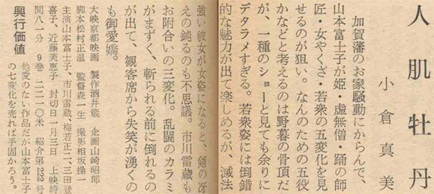 人肌牡丹
小倉真美
加賀藩のお家騒動にからんで、
山本富士子が姫・虚無僧・踊の師
匠・女やくざ・若衆の五変化を見
せるのが狙い。なんのための五役
かなどと考えるのは野暮の骨頂だ
が、一種のショーと見ても余りに
デタラメすぎる。若衆姿には倒錯
的な魅力が出て楽しめるが、滅法
強い彼女が女姿になると、剣の冴
えの鈍るのも不思議。市川雷蔵も
お附合いの三変化。乱闘のカラミ
がまずく、斬られる前に倒れるの
が出て、観客席から失笑が湧くの
も御愛嬌。
大映京都映画 製作酒井箴 企画山崎昭郎
脚本松村正温 監督森一生 撮影相坂操一
主演山本富士子、市川雷蔵、梅若正二、三田登
喜子、近藤美恵子、封切日一月三日 上映時
間八一分 9巻 二二二〇米 紹介第二二二号
興行価値 他愛のない作品だが山本富士子
の七変化を売れば手固かろう。